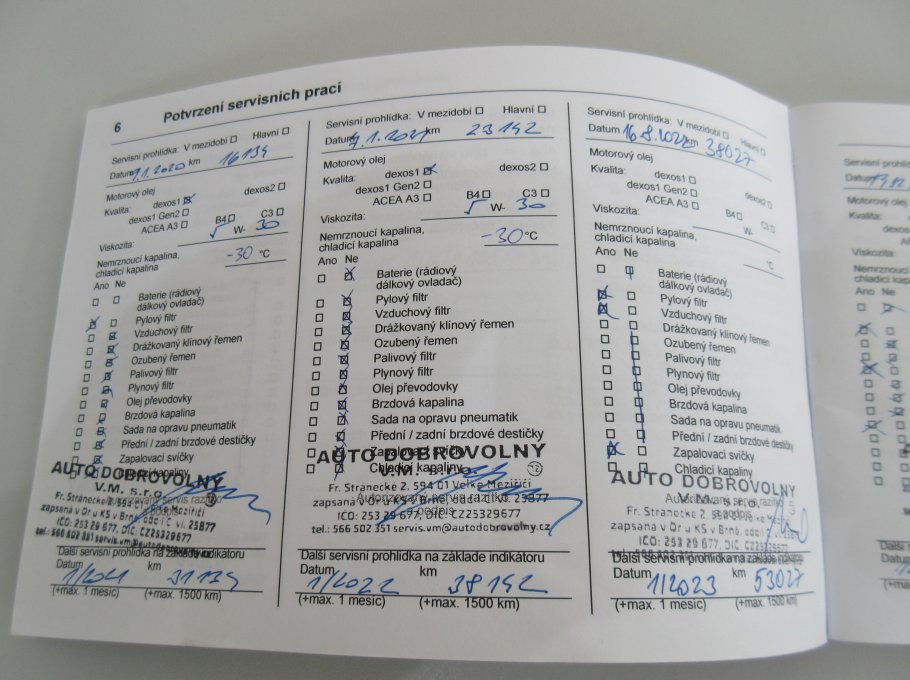 6 Potvrzení servisních prací
Servisní prohlídka: V mezidobí Hlavní
Datum 9.1.2020 km 16134
Motorový olej
Kvalita: dexos1 dexos2
dexos1 Gen2
ACEA A3 B4 C3
Viskozita: 5 W- 30
Nemrznoucí kapalina,
chladicí kapalina -30 °C
Ano Ne
Baterie (rádiový
dálkový ovladač)
Pylový filtr
Vzduchový filtr
Drážkovaný klínový řemen
Ozubený řemen
Palivový filtr
Plynový filtr
Olej převodovky
Brzdová kapalina
Sada na opravu pneumatik
Přední / zadní brzdové destičky
Zapalovací svíčky
Chladicí kapaliny
AUTO DOBROVOLNÝ
V.M. s.r.o. 12
Fr. Stránecké 2, 594 01 Velké Meziříčí
zapsaná v Or u KS v Brně, odd.C vl. 25877
IČO: 253 29 677, DIČ: CZ25329677
tel.: 566 502 351 servis.vm@autodobrovolny.cz
Další servisní prohlídka na základě indikátoru
Datum km
1/2021 31134
(+max. 1 měsíc) (+max. 1500 km)
Servisní prohlídka: V mezidobí Hlavní
Datum 9.1.2021 km 23192
Motorový olej
Kvalita: dexos1 dexos2
dexos1 Gen2
ACEA A3 B4 C3
Viskozita: 5 W- 30
Nemrznoucí kapalina,
chladicí kapalina -30 °C
Ano Ne
Baterie (rádiový
dálkový ovladač)
Pylový filtr
Vzduchový filtr
Drážkovaný klínový řemen
Ozubený řemen
Palivový filtr
Plynový filtr
Olej převodovky
Brzdová kapalina
Sada na opravu pneumatik
Přední / zadní brzdové destičky
Zapalovací svíčky
Chladicí kapaliny
AUTO DOBROVOLNÝ
V.M. s.r.o. 12
Fr. Stránecké 2, 594 01 Velké Meziříčí
Autorizovaný servis razítko
zapsaná v Or u KS v Brně, odd.C vl. 25877
podpis
IČO: 253 29 677, DIČ: CZ25329677
tel.: 566 502 351 servis.vm@autodobrovolny.cz
Další servisní prohlídka na základě indikátoru
Datum km
1/2022 38192
(+max. 1 měsíc) (+max. 1500 km)
Servisní prohlídka: V mezidobí Hlavní
Datum 16.8.2022 km 38027
Motorový olej
Kvalita: dexos1 dexos2
dexos1 Gen2
ACEA A3 B4 C3
Viskozita: W-
Nemrznoucí kapalina,
chladicí kapalina °C
Ano Ne
Baterie (rádiový
dálkový ovladač)
Pylový filtr
Vzduchový filtr
Drážkovaný klínový řemen
Ozubený řemen
Palivový filtr
Plynový filtr
Olej převodovky
Brzdová kapalina
Sada na opravu pneumatik
Přední / zadní brzdové destičky
Zapalovací svíčky
Chladicí kapaliny
AUTO DOBROVOLNÝ
Autorizovaný servis razítko
V.M. s.r.o.
podpis
Fr. Stránecké 2,
zapsaná v Or u KS v Brně, odd.C
IČO: 253 29 677, DIČ: CZ25329677
Další servisní prohlídka na základě
Datum km
1/2023 53027
(+max. 1 měsíc) (+max. 1500 km)
Servisní
Datum
Motorový olej
Kvalita:
Viskozita:
Nemrznoucí
chladicí
Ano Ne
Další
Datum